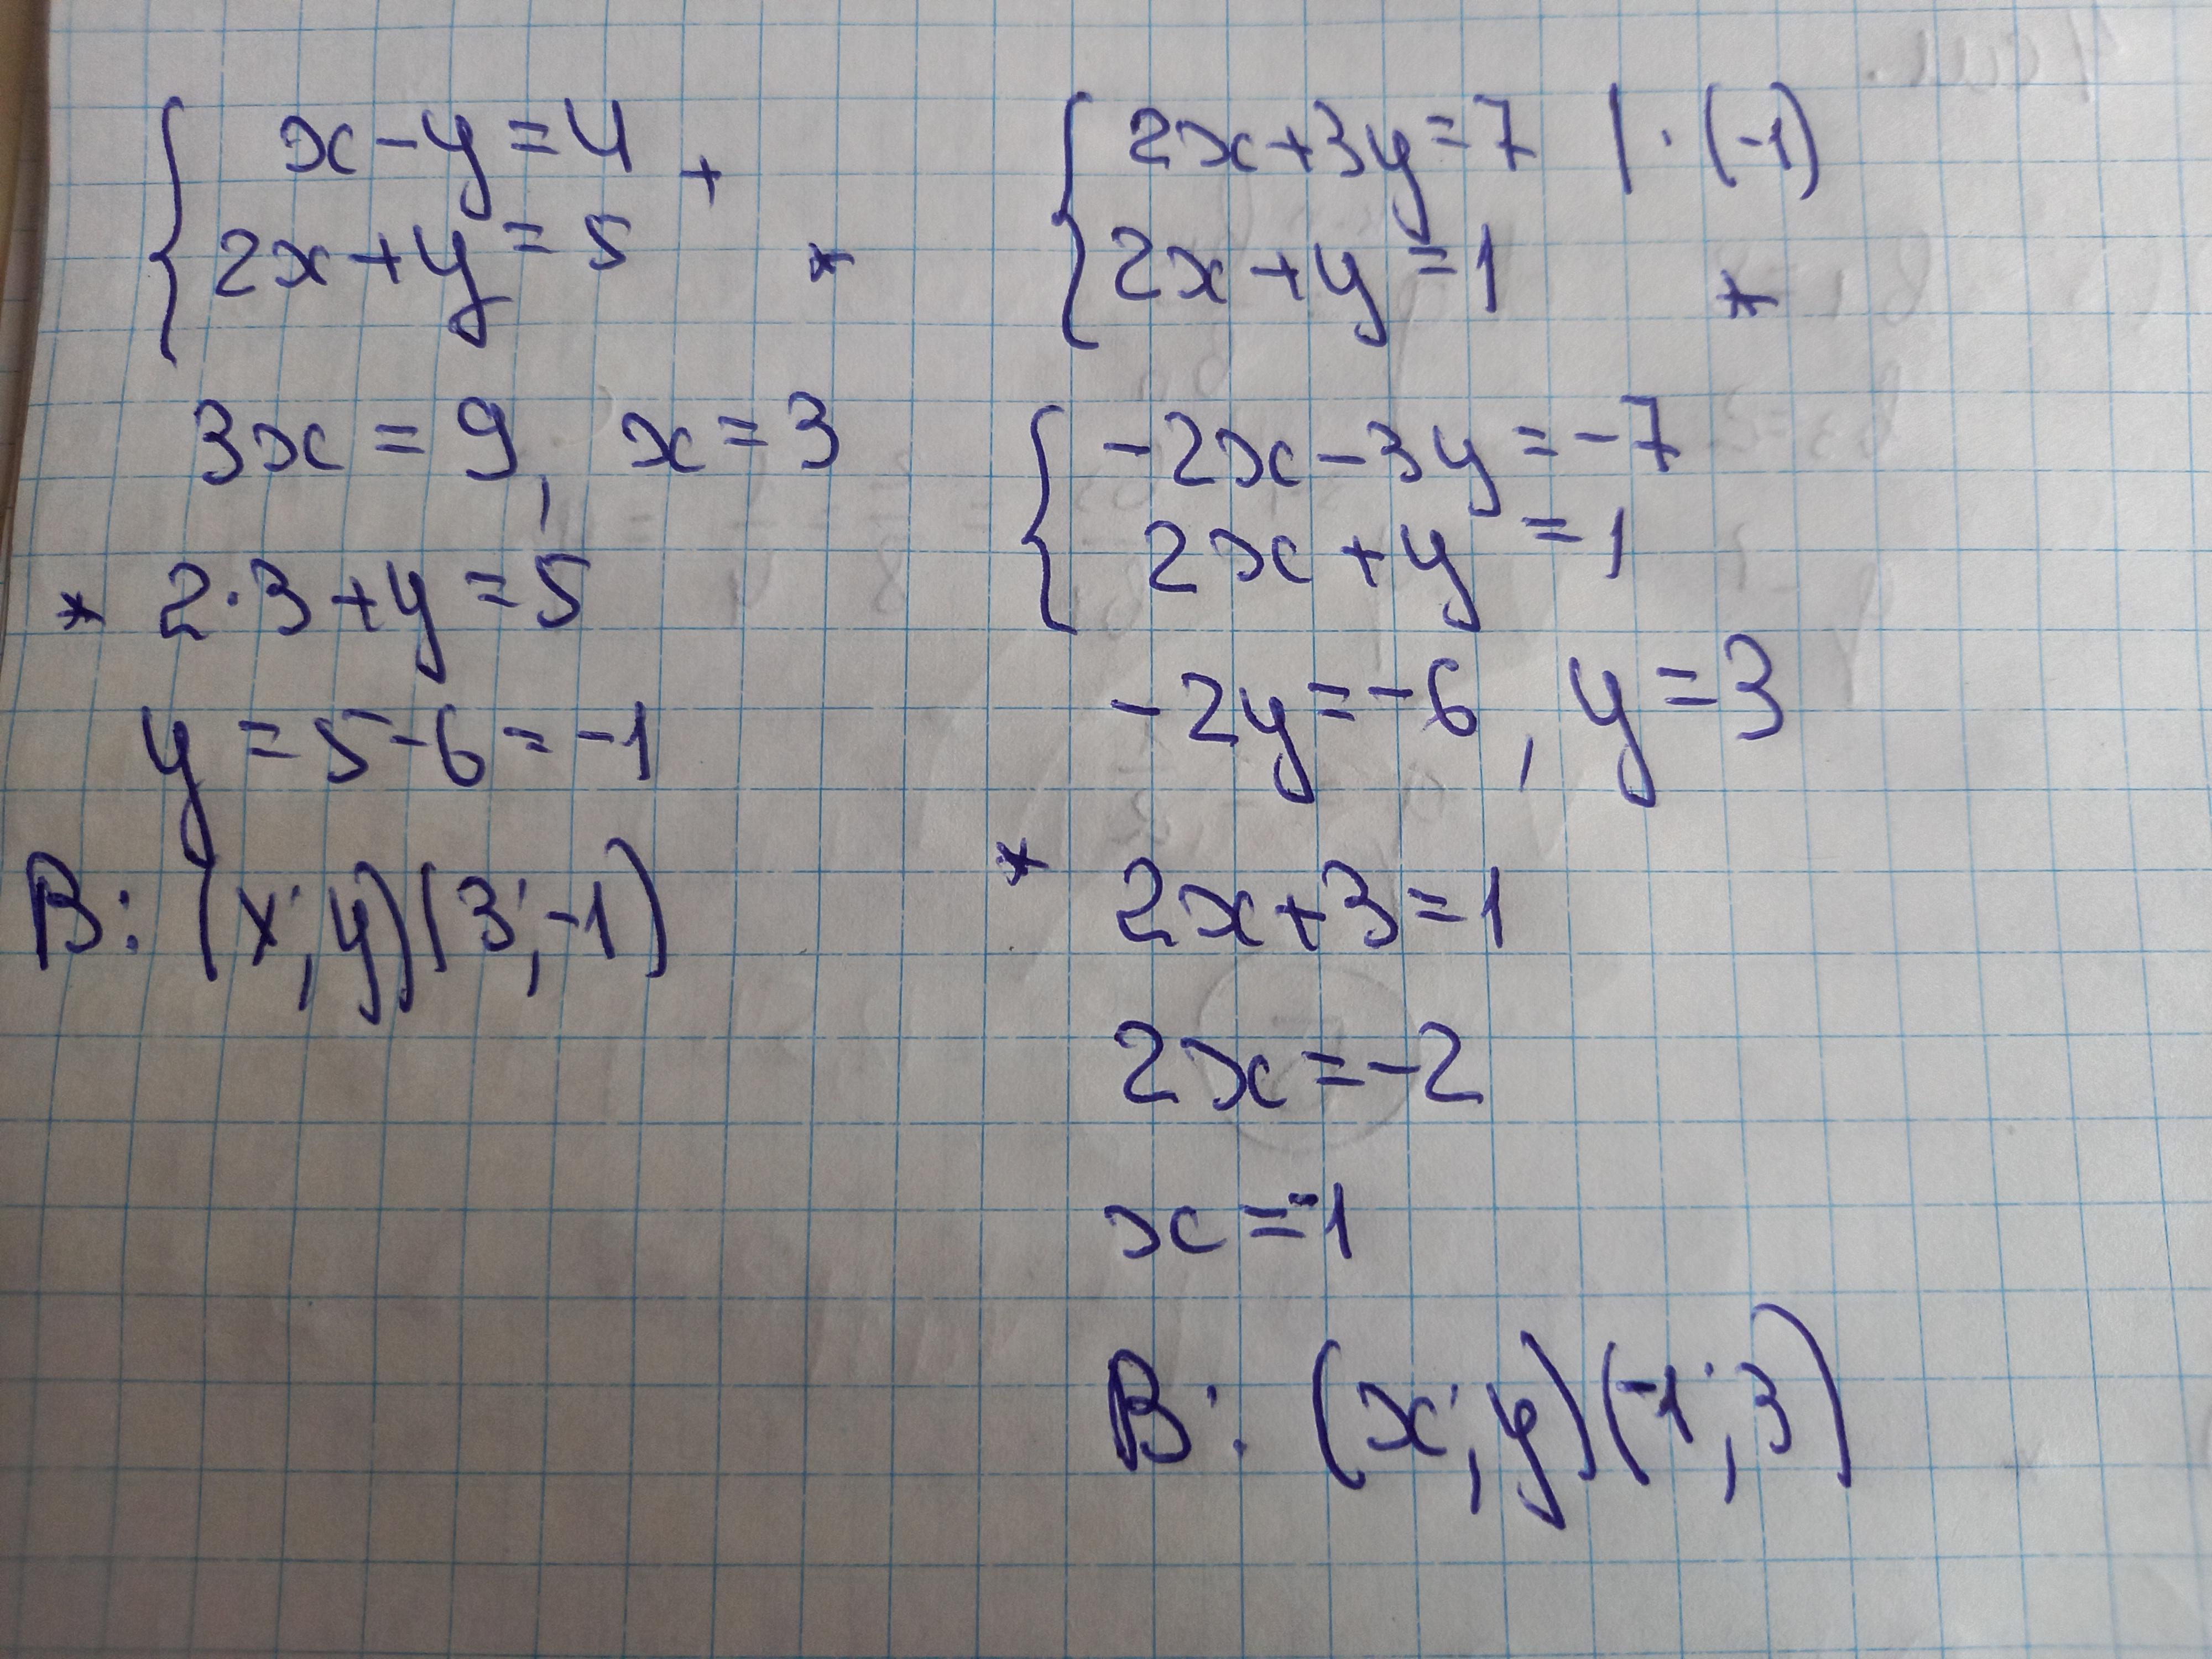 x-y=4 +
2x+y=5 *
3x=9, x=3
* 2·3+y=5
y=5-6=-1
В: (x; y)(3; -1)
2x+3y=7 | ·(-1)
2x+y=1 *
-2x-3y=-7
2x+y=1
-2y=-6, y=3
* 2x+3=1
2x=-2
x=-1
В: (x; y)(-1; 3)